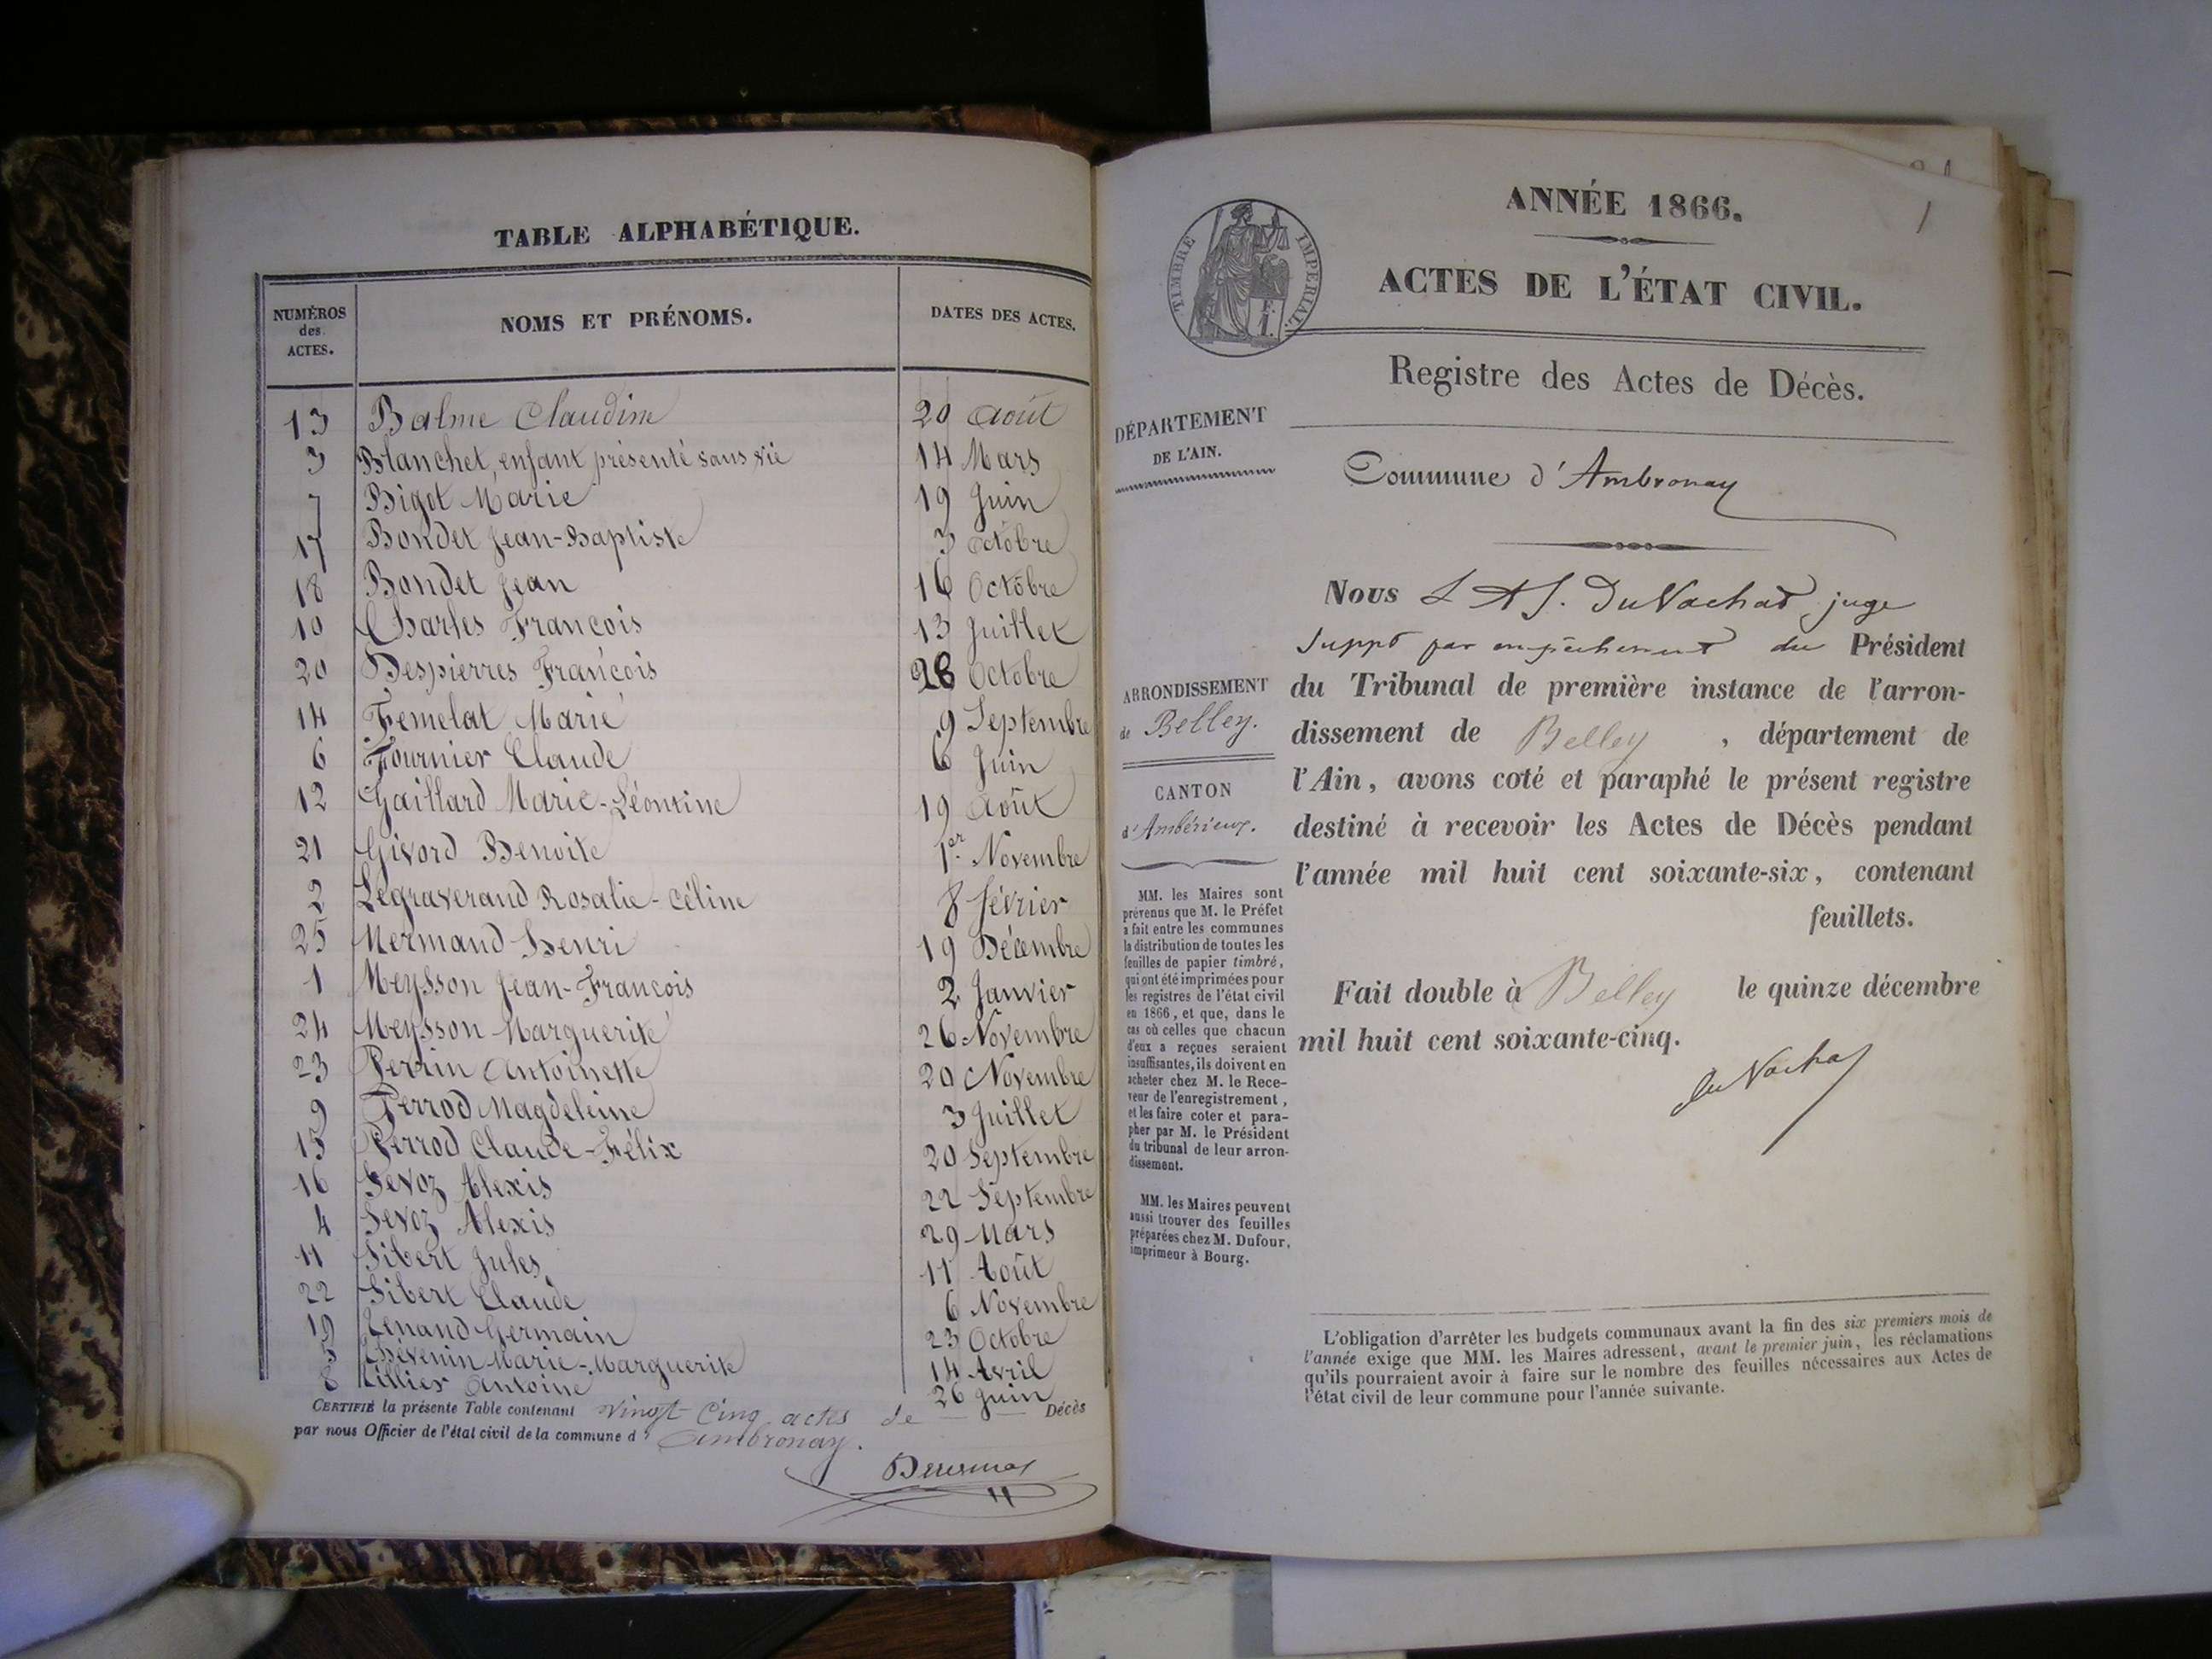 TABLE ALPHABÉTIQUE.
NUMÉROS des ACTES. NOMS ET PRÉNOMS. DATES DES ACTES.
13 Balme Claudine 20 Août
3 Blanchet, enfant présenté sans vie 14 Mars
7 Bigot Marie 19 Juin
17 Bondet Jean-Baptiste 3 Octobre
18 Bondet Jean 16 Octobre
10 Charles François 13 Juillet
20 Despierres François 28 Octobre
14 Femelat Marie 9 Septembre
6 Fournier Claude 6 Juin
12 Gaillard Marie-Léontine 19 Août
21 Givord Benoite 1er Novembre
2 Legraverand Rosalie-Céline 8 Février
25 Mermand Henri 19 Décembre
1 Meysson Jean-François 2 Janvier
24 Meysson Marguerite 26 Novembre
23 Perrin Antoinette 20 Novembre
9 Perrod Magdeleine 3 Juillet
15 Perrod Claude-Félix 20 Septembre
16 Sevoz Alexis 22 Septembre
4 Sevoz Alexis 29 Mars
11 Sibert Jules 11 Août
22 Sibert Claude 6 Novembre
19 Tenand Germain 23 Octobre
5 Thévenin Marie-Marguerite 14 Avril
8 Tillier Antoine 26 Juin
CERTIFIÉ la présente Table contenant vingt Cinq actes de Décès
par nous Officier de l'état civil de la commune d' Ambronay.
1
ANNÉE 1866.
TIMBRE IMPÉRIAL.
ACTES DE L'ÉTAT CIVIL.
Registre des Actes de Décès.
DÉPARTEMENT
DE L'AIN.
Commune d'Ambronay
ARRONDISSEMENT
de Belley.
CANTON
d'Ambérieux.
MM. les Maires sont
prévenus que M. le Préfet
a fait entre les communes
la distribution de toutes les
feuilles de papier timbré,
qui ont été imprimées pour
les registres de l'état civil
en 1866, et que, dans le
cas où celles que chacun
d'eux a reçues seraient
insuffisantes, ils doivent en
acheter chez M. le Rece-
veur de l'enregistrement,
et les faire coter et para-
pher par M. le Président
du tribunal de leur arron-
dissement.
MM. les Maires peuvent
aussi trouver des feuilles
préparées chez M. Dufour,
imprimeur à Bourg.
Nous DuVachat, juge
suppt par empêchement du Président
du Tribunal de première instance de l'arron-
dissement de Belley, département de
l'Ain, avons coté et paraphé le présent registre
destiné à recevoir les Actes de Décès pendant
l'année mil huit cent soixante-six, contenant
feuillets.
Fait double à Belley le quinze décembre
mil huit cent soixante-cinq.
du Vachat
L'obligation d'arrêter les budgets communaux avant la fin des six premiers mois de
l'année exige que MM. les Maires adressent, avant le premier juin, les réclamations
qu'ils pourraient avoir à faire sur le nombre des feuilles nécessaires aux Actes de
l'état civil de leur commune pour l'année suivante.